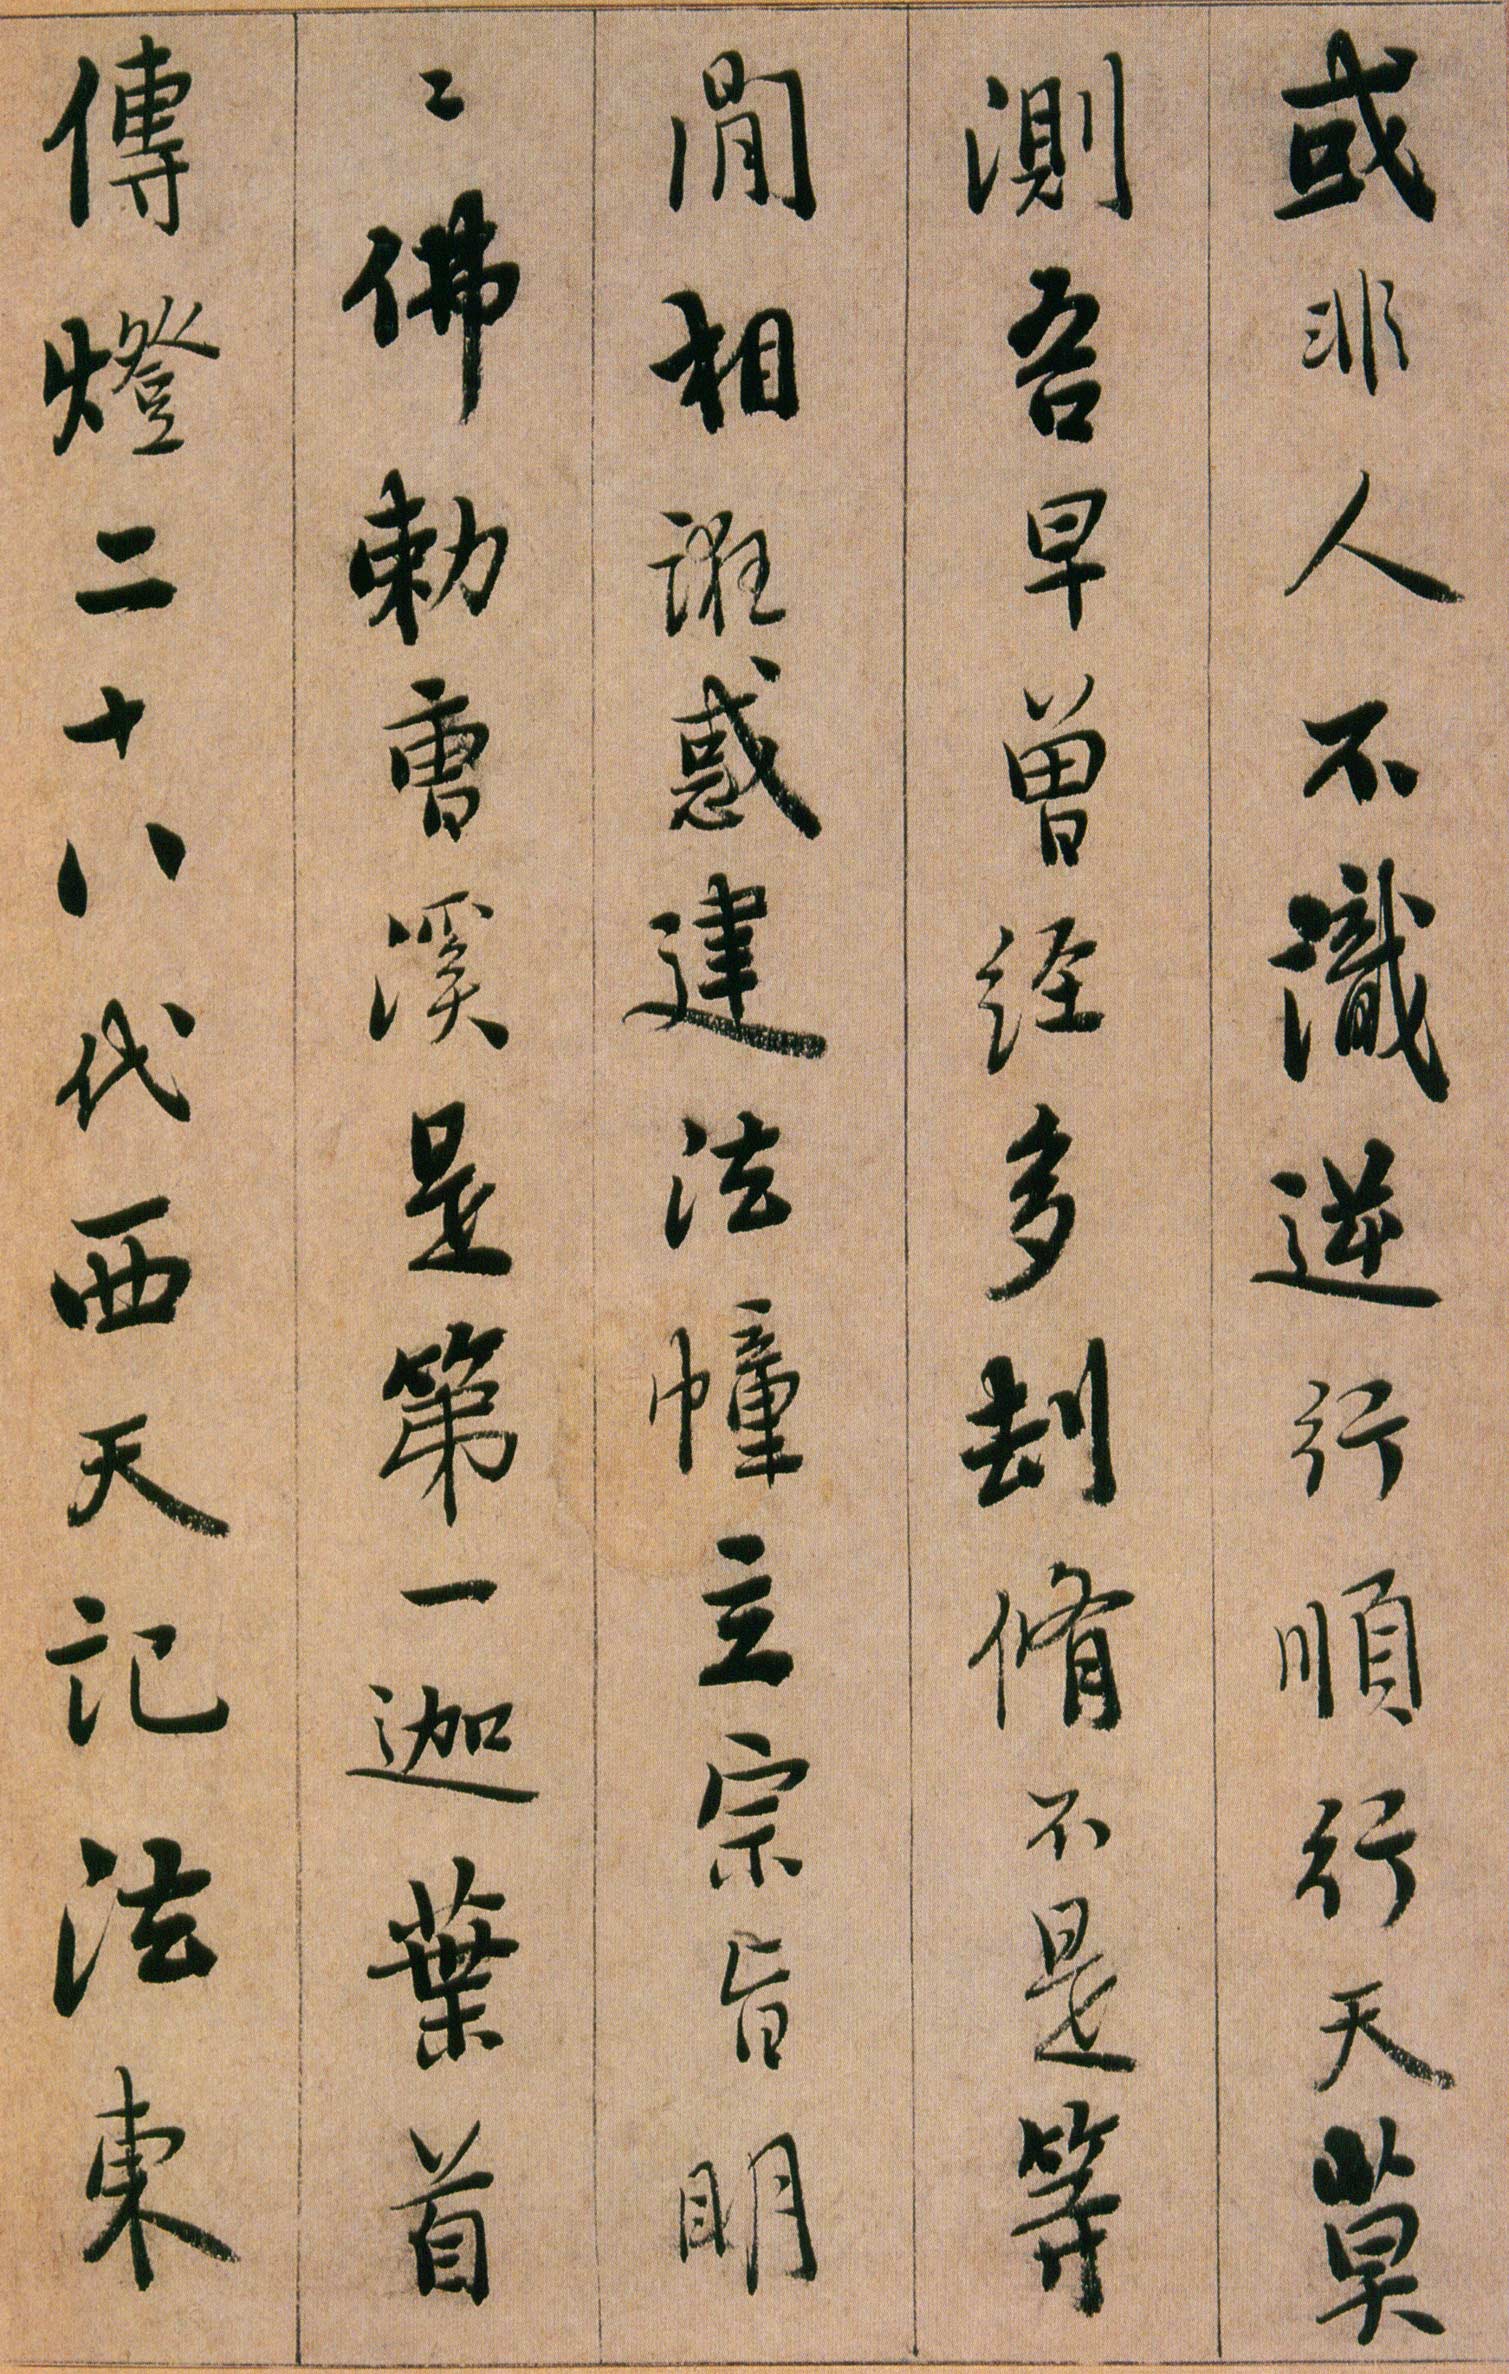 或非人不識逆行順行天莫
測吾早曽經多刼脩不是等
閒相誑惑建法幢立宗旨明
〻佛勅曹溪是第一迦葉首
傳燈二十八代西天記法東